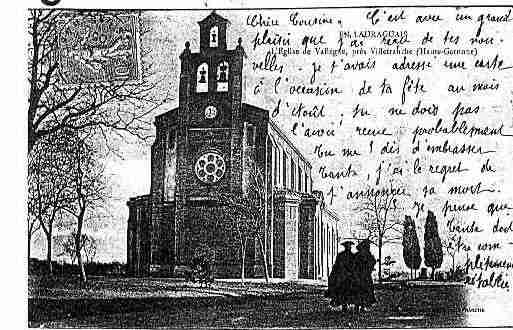 Chère Cousine. C'est avec un grand
plaisir que j'ai reçu de tes nou-
EN LAURAGAIS
L'Église de Vallègue, près Villefranche (Haute-Garonne)
velles. je t'avais adressé une carte
à l'occasion de ta fête au mois
d'Août, tu ne dois pas
l'avoir reçue probablement
Tu me dis d'embrasser
Tante, j'ai le regret de
t'annoncer sa mort.
Je pense que
Tante doit
être com-
plètement
rétablie.